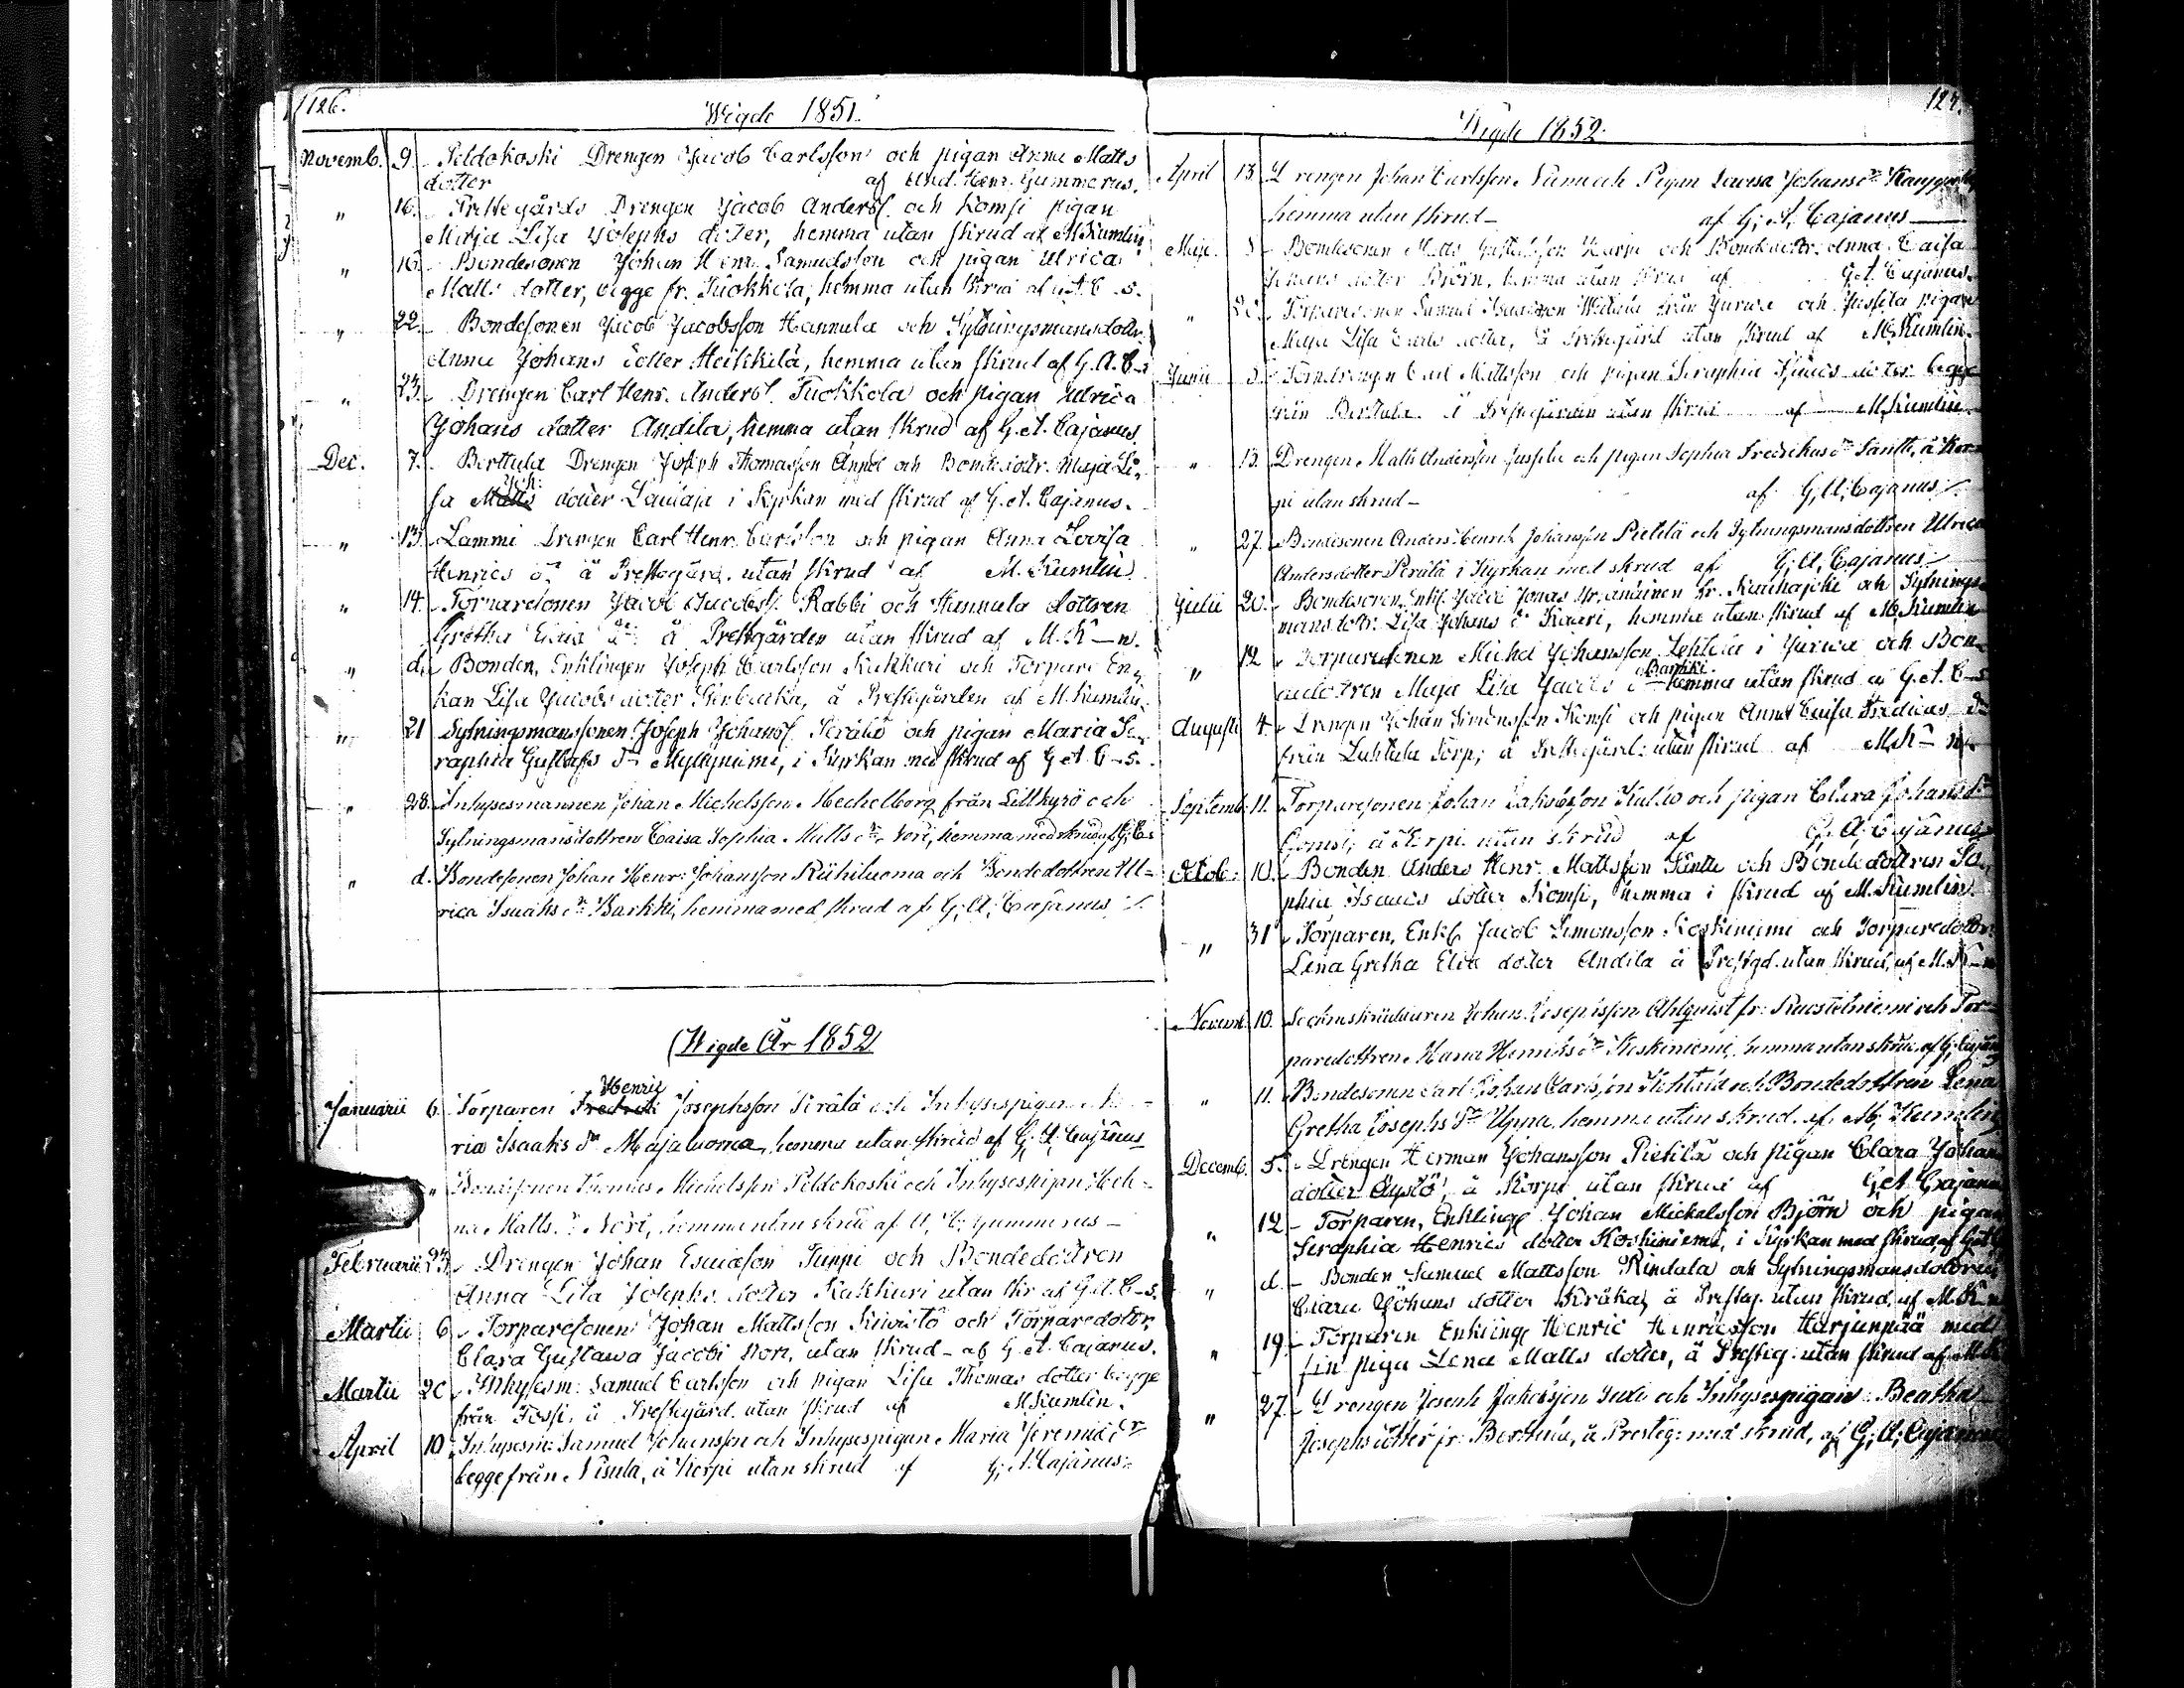 126.
Wigde 1851.
Novemb. 9. Peldokoski Drengen Jacob Carlsson och pigan Anna Matts
dotter af And. Henr. Gummerus.
" 16. Prestegårds Drengen Jacob Anders. och Komsi pigan
Maja Lisa Josephs dotter, hemma utan skrud af M. Kumlin
" 16. Bondesonen Johan Henr. Samuelsson och pigan Ulrica
Matts dotter, begge fr. Tuokkola, hemma utan skrud af G. A. C-s.
" 22. Bondesonen Jacob Jacobsson Hannula och Sytningsmansdottr.
Anna Johans dotter Heikkilä, hemma utan skrud af G. A. C-s
" 23. Drengen Carl Henr. Anders. Tuokkola och pigan Ulrica
Johans dotter Andila, hemma utan skrud af G. A. Cajanus
Dec. 7. Berttula Drengen Joseph Thomasson och Bondedotr. Maja Li-
sa Matts Joh: dotter i Kyrkan med skrud af G. A. Cajanus.
" 13. Lammi Drengen Carl Henr. Carlsson och pigan Anna Lovisa
Henrics dr å Prestegård. utan skrud af M. Kumlin
" 14. Torparesonen Jacob Jacobss. Rabbi och Hannula dottren
Gretha dr å Prestgården utan skrud af M. K-n.
" d. Bonden, Enklingen Joseph Carlsson Kakkuri och Torpare En-
kan Lisa Jacobs dotter å Prestgården af M. Kumlin
" 21 Sytningsmanssonen Joseph Johans. Perälä och pigan Maria Se-
raphia Gustafs dr Myllyniemi, i Kyrkan med skrud af G. A. C-s.
" 28. Inhysesmannen Johan Michelsson Mechelborg från Lillkyrö och
Sytningsmansdottren Caisa Sophia Matts dr Nori, hemma med skrud af G. C-s
" d. Bondesonen Johan Henr: Johansson Riihiluoma och Bondedottren Ul-
rica Isaaks dr Barkki, hemma med skrud af G. A. Cajanus
Wigde År 1852
Januarii 6. Torparen Fredrik Henric Josephsson Perälä och Inhysespigan Ma-
ria Isaaks dr Majaluoma, hemma utan skrud af G. A. Cajanus
" Bondesonen Thomas Michelsson Peldokoski och Inhysespigan Hele-
na Matts dr Nori, hemma utan skrud af A. H. Gummerus -
Februarii 23. Drengen Johan Esaiasson och Bondedottren
Anna Lisa Josephs dotter Kakkuri utan skr. af G. A. C-s.
Martii 6. Torparesonen Johan Mattsson Kuivisto och Torparedottr.
Clara Gustawa Jacobi Nori, utan skrud - af G. A. Cajanus.
Martii 20. Inhysesm: Samuel Carlsson och pigan Lisa Thomas dotter begge
från å Prestegård. utan skrud af M. Kumlin.
April 10 Inhysesm: Samuel Johansson och Inhysespigan Maria Jeremiæ dr
begge från Nisula, å Korpi utan skrud af G. A. Cajanus.
127.
Wigde 1852.
April 13 Drengen Johan Carlsson och Pigan Lovisa Johans dr
hemma utan skrud - af G. A. Cajanus
Maji. Bondesonen Matts Gustafsson och Bondedottr. Anna Caisa
Johans dotter Björn, hemma utan skrud af G. A. Cajanus.
" Torparesonen Samuel från Jurva och Jussila pigan
Maja Lisa Carls dotter, å Prestegård utan skrud af M. Kumlin.
Junii Torpdrengen Carl Mattsson och pigan Seraphia dotter begge
från Berttula å Prestegården utan skrud af M. Kumlin
" 13. Drengen Matts Andersson Jussila och pigan Sophia Fredrikus dr Santti, å Kor-
pi utan skrud - af G. A. Cajanus.
" 27. Bondesonen Anders Henrik Johansson Pietilä och Sytningsmansdottren Ulrica
Andersdotter Perälä i Kyrkan med skrud af G. A. Cajanus.
Julii 20. Bondesonen, Enkl. Jacob Jonas fr. Kauhajoki och Sytnings-
mans dottr. Lisa Johans dr Kaari, hemma utan skrud af M. Kumlin
" 12 Torparesonen Michel Johansson i Jurva och Bon-
dedottren Maja Lisa Jacobs dr Barkki hemma utan skrud af G. A. C-s
Augusti 4. Drengen Johan Simonsson Komsi och pigan Anna Caisa Fredrics dr
från Luhtala Torp; å Prestegård: utan skrud af M. K-n.
Septemb. 11. Torparesonen Johan Jakobsson och pigan Clara Johans dr
Komsi; å Korpi utan skrud af G. A. Cajanus
Octob: 10. Bonden Anders Henr. Mattsson och Bondedottren So-
phia Isaacs dotter Komsi, hemma i skrud af M. Kumlin.
" 31 Torparen, Enkl. Jacob Simonsson Koskiniemi och Torparedottr.
Lena Gretha Elia dotter Andila å Prestgd. utan skrud, af M. K-n
Novemb. 10. Sockneskräddaren Johan Josephsson Ahlqvist fr. och Tor-
paredottren Maria Henriks dr Koskiniemi, hemma utan skrud. af G. Cajan
" 11. Bondesonen Carl Johan Carlsson och Bondedottren Lena
Gretha Josephs dr Uppa, hemma utan skrud. af M. Kumlin
Decemb. 5. Drengen Herman Johansson Pietilä och pigan Clara Johans
dotter å Korpi utan skrud af G. A. Cajanus
" 12 - Torparen, Enkling Johan Michelsson Björn och pigan
Seraphia Henrics dotter Koskiniemi, i Kyrkan med skrud, af G. A. C
" d. - Bonden Samuel Mattsson Rindala och Sytningsmansdottren
Clara Johans dotter Kråka, å Presteg. utan skrud, af M. K-n
" 19. - Torparen Enkling Henric Henricsson Harjunpää med
sin piga Lena Matts dotter, å Presteg: utan skrud af M. K
" 27. - Drengen Joseph Jakobsson och Inhysespigan Beatha
Josephs dotter fr. Berttula, å Presteg: med skrud, af G. A. Cajanus